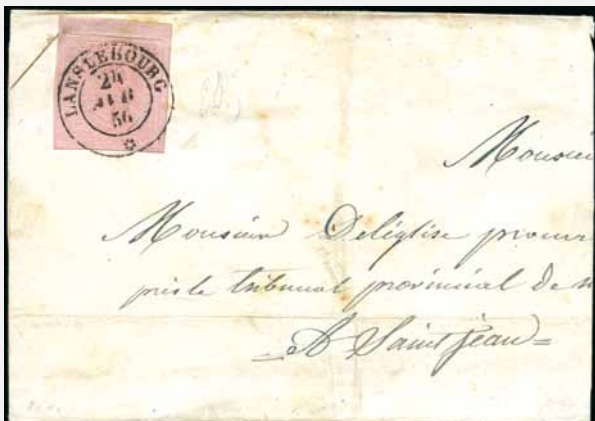 LANSLEBOURG
24
56
Monsieu
Monsieur Deléglise procur
près le tribunal provincial de
A Saint Jean